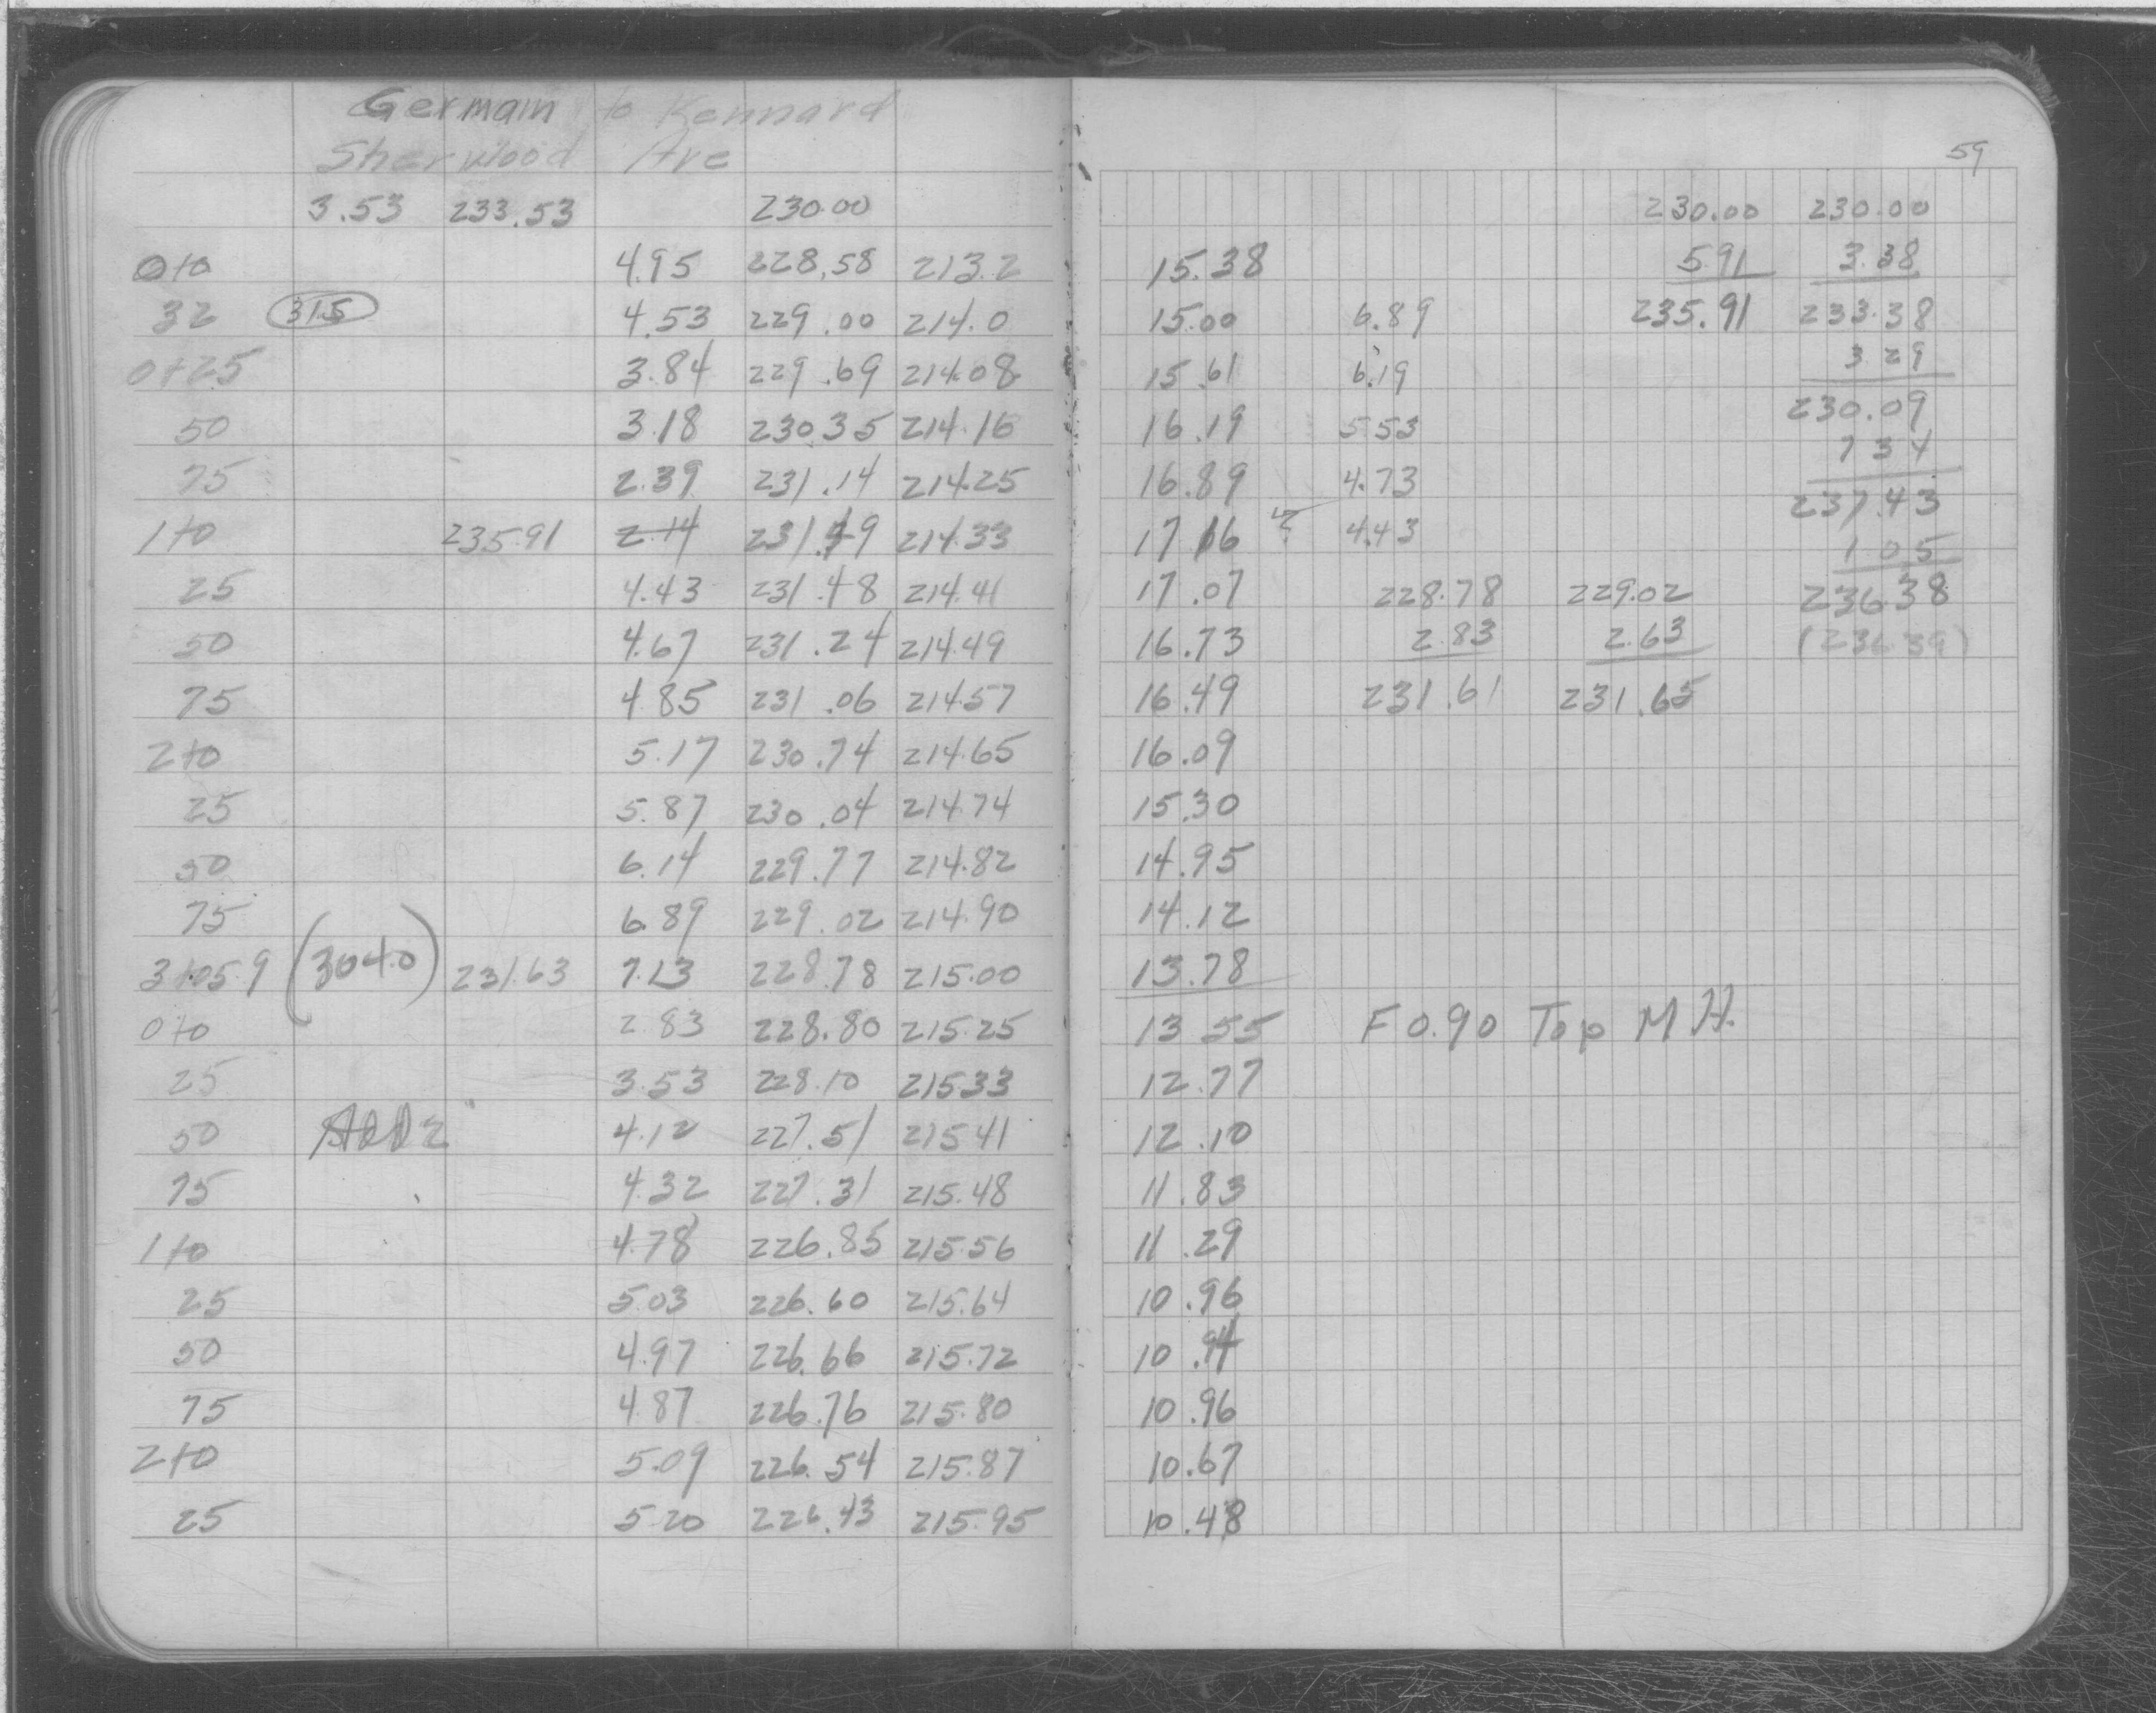 Germain to Kennard
Sherwood Ave
59
3.53 233.53 230.00 230.00 230.00
0+0 4.95 228.58 213.2 15.38 5.91 3.38
32 31.5 4.53 229.00 214.0 15.00 6.89 235.91 233.38
0+25 3.84 229.69 214.08 15.61 6.19 3 29
50 3.18 230.35 214.16 16.19 5.53 230.09
75 2.39 231.14 214.25 16.89 4.73 7 34
237.43
1+0 235.91 2.14 214.33 17 16 4.43 1 05
25 4.43 231.48 214.41 17.07 228.78 229.02 236.38
50 4.67 231.24 214.49 16.73 2.83 2.63 (236.39)
75 4.85 231.06 214.57 16.49 231.61 231.65
2+0 5.17 230.74 214.65 16.09
25 5.87 230.04 214.74 15.30
50 6.14 229.77 214.82 14.95
75 6.89 229.02 214.90 14.12
3+05.9 (304.0) 231.63 7.13 228.78 215.00 13.78
0+0 2.83 228.80 215.25 13 55 F 0.90 Top M.H.
25 3.53 228.10 215.33 12.77
50 4.12 227.51 215.41 12.10
75 4.32 227.31 215.48 11.83
1+0 4.78 226.85 215.56 11.29
25 5.03 226.60 215.64 10.96
50 4.97 226.66 215.72 10.94
75 4.87 226.76 215.80 10.96
2+0 5.09 226.54 215.87 10.67
25 5.20 226.43 215.95 10.48